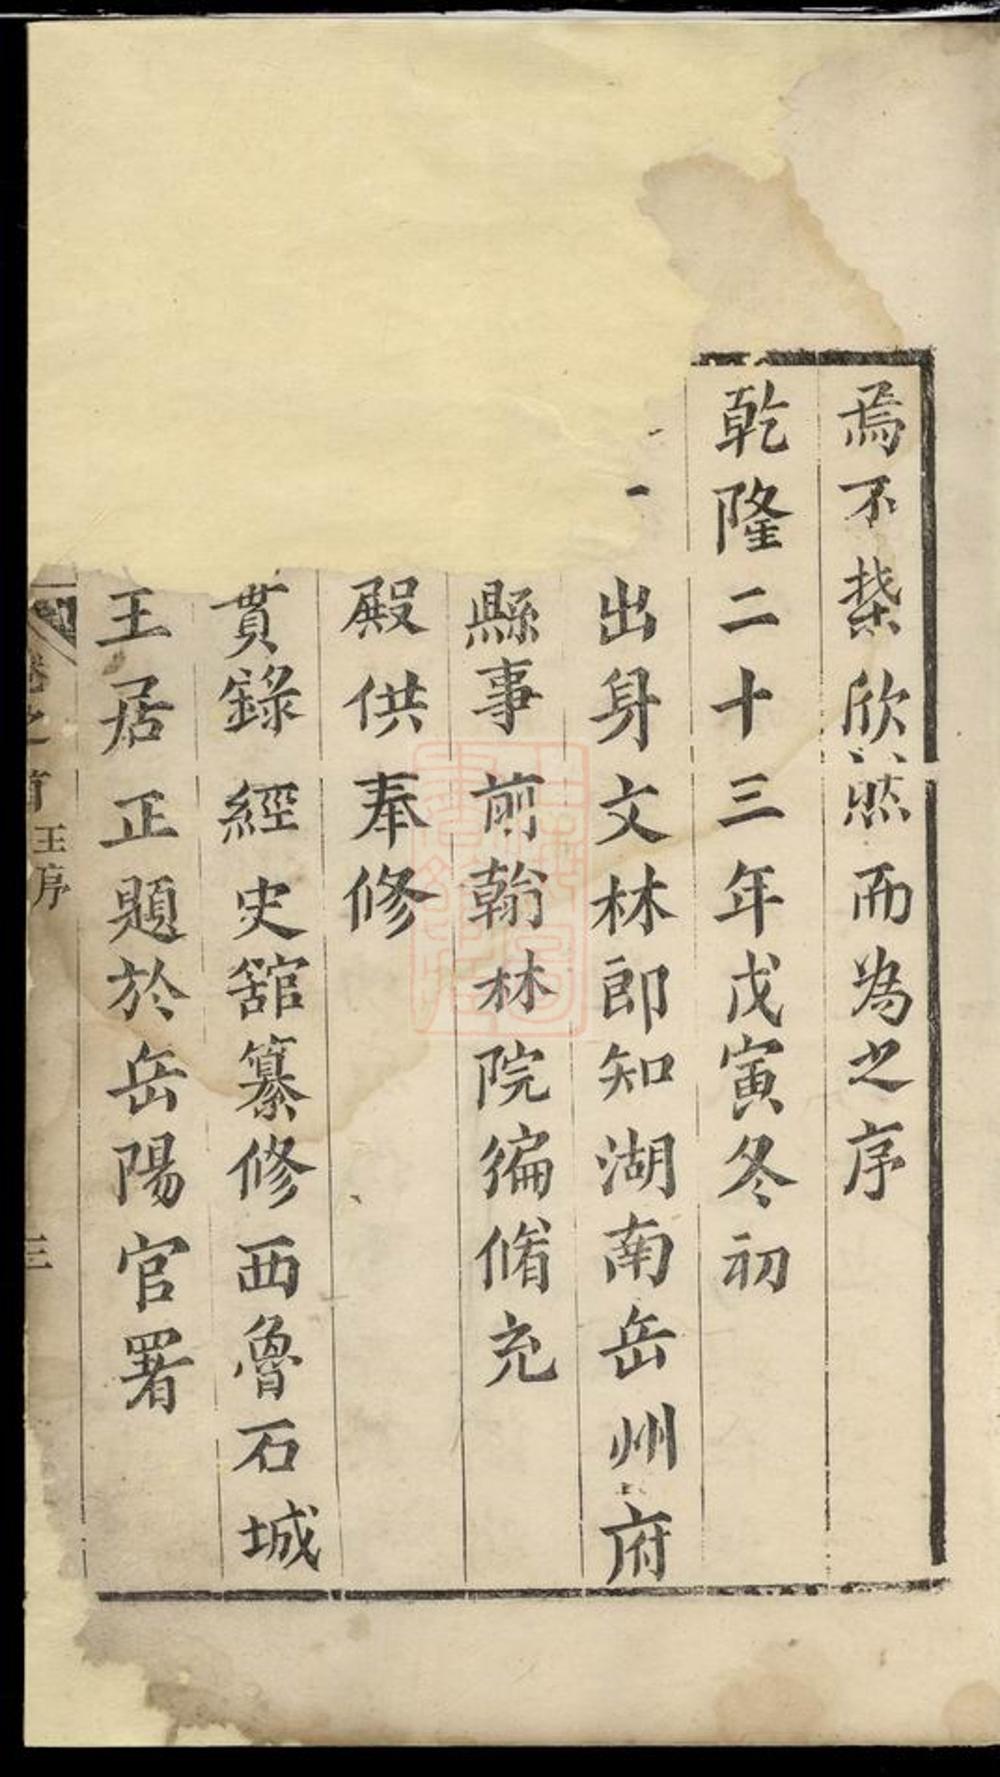 焉不棼欣然而為之序
乾隆二十三年戊寅冬初
出身文林郎知湖南岳州府
縣事前翰林院編脩充
殿供奉修
貫錄經史舘纂修西魯石城
王居正題於岳陽官署
卷之首 王序 三